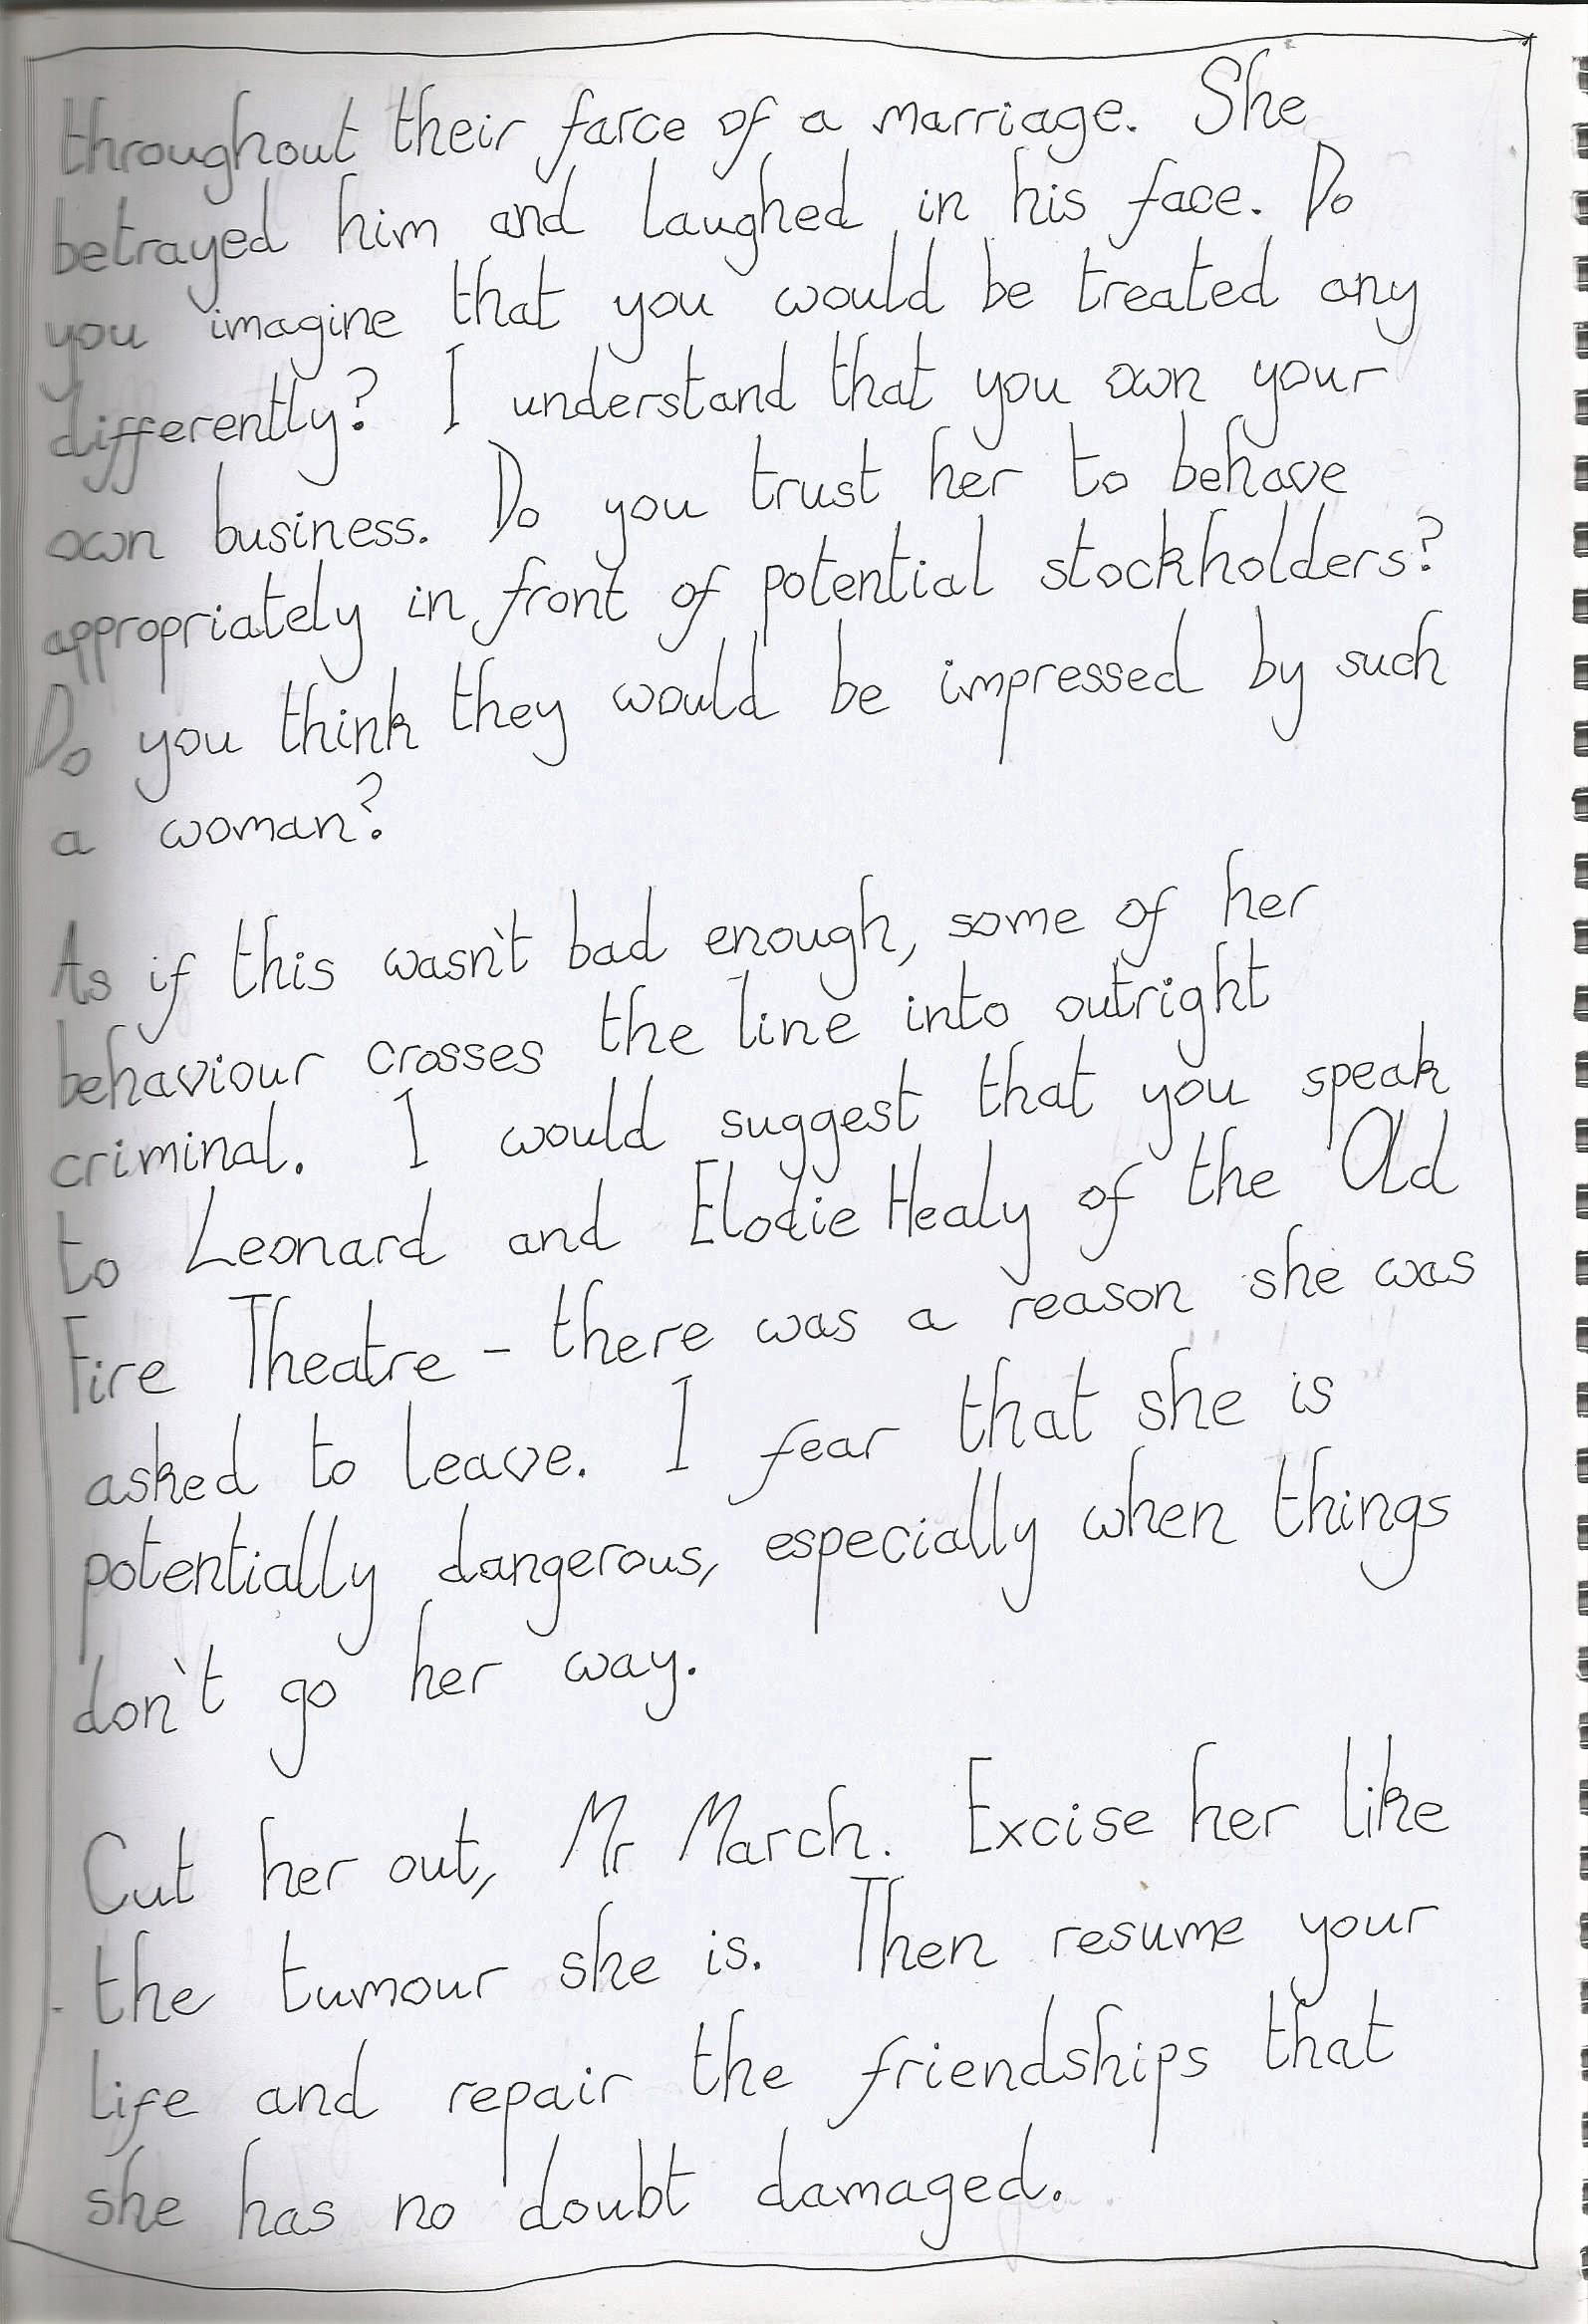 throughout their farce of a marriage. She
betrayed him and laughed in his face. Do
you imagine that you would be treated any
differently? I understand that you own your
own business. Do you trust her to behave
appropriately in front of potential stockholders?
Do you think they would be impressed by such
a woman?
As if this wasn't bad enough, some of her
behaviour crosses the line into outright
criminal. I would suggest that you speak
to Leonard and Elodie Healy of the Old
Fire Theatre - there was a reason she was
asked to leave. I fear that she is
potentially dangerous, especially when things
don't go her way.
Cut her out, Mr March. Excise her like
the tumour she is. Then resume your
life and repair the friendships that
she has no doubt damaged.